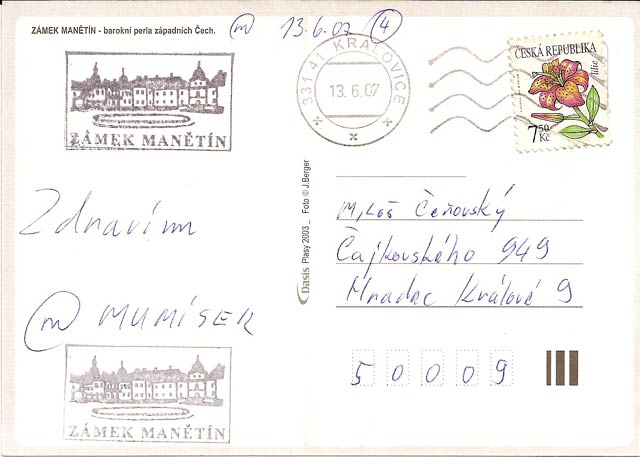 ZÁMEK MANĚTÍN - barokní perla západních Čech.
m 13.6.07 4
ZÁMEK MANĚTÍN
331 41 KRALOVICE
13.6.07
ČESKÁ REPUBLIKA
lilie
7,50 Kč
Zdravím
m MUMÍSEK
ZÁMEK MANĚTÍN
Dasis Plasy 2003_ Foto © J.Berger
Miloš Čeňovský
Čajkovského 949
Hradec Králové 9
50009